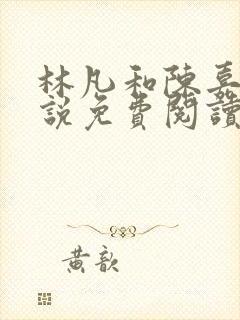 林凡和陳嘉
說免費閱讀
黃歆